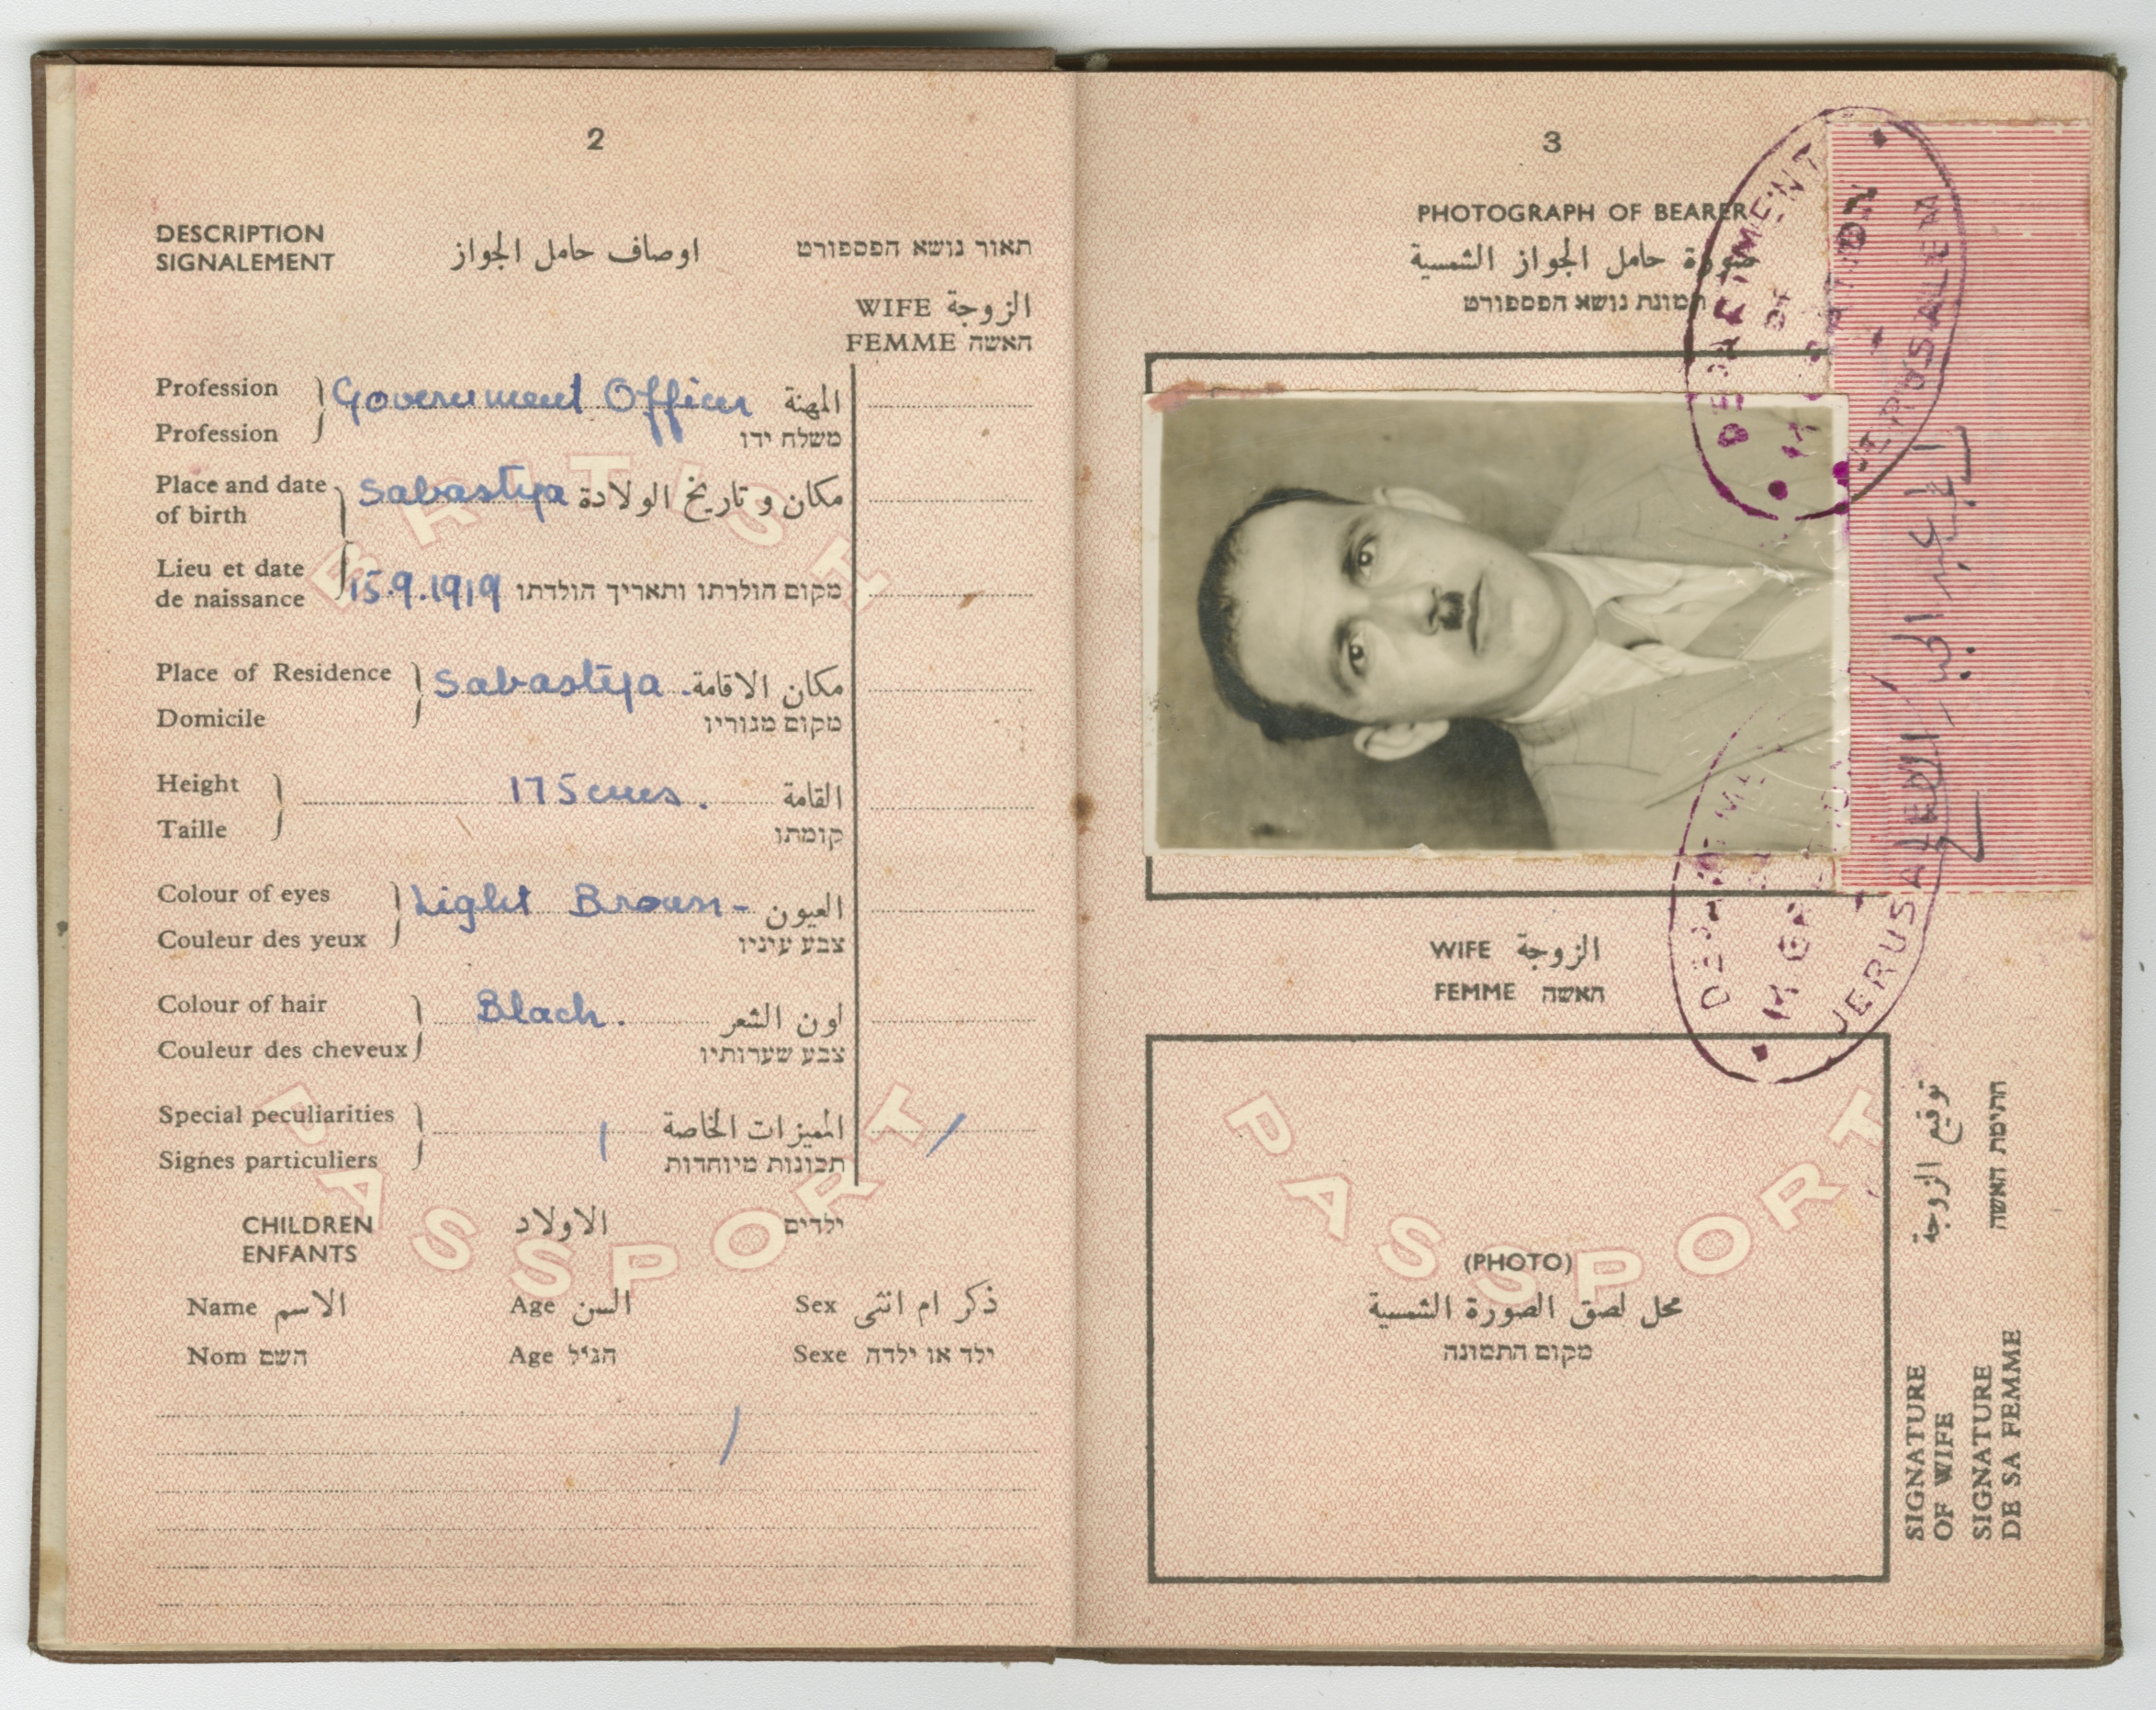 2
DESCRIPTION
SIGNALEMENT
اوصاف حامل الجواز
תאור נושא הפספורט
WIFE الزوجة
FEMME האשה
Profession
Government Officer
المهنة
Profession
משלח ידו
Place and date
of birth
Sabastiya
مكان و تاريخ الولادة
Lieu et date
de naissance
15.9.1919
מקום הולרתו ותאריך הולדתו
Place of Residence
Sabastiya.
مكان الاقامة
Domicile
מקום מגוריו
Height
175 cms.
القامة
Taille
קומתו
Colour of eyes
Light Brown-
العيون
Couleur des yeux
צבע עיניו
Colour of hair
Black.
لون الشعر
Couleur des cheveux
צבע שערותיו
Special peculiarities
المميزات الخاصة
Signes particuliers
תכונות מיוחדות
CHILDREN
ENFANTS
الاولاد
ילדים
Name الاسم
Age السن
Sex ذكر ام انثى
Nom השם
Age הגיל
Sexe ילד או ילדה
BRITISH
PASSPORT
3
PHOTOGRAPH OF BEARER
صورة حامل الجواز الشمسية
תמונת נושא הפספורט
DEPARTMENT
OF
JERUSALEM
WIFE الزوجة
FEMME האשה
JERUSALEM
PASSPORT
(PHOTO)
محل لصق الصورة الشمسية
מקום התמונה
توقيع الزوجة
חתימת האשה
SIGNATURE
OF WIFE
SIGNATURE
DE SA FEMME